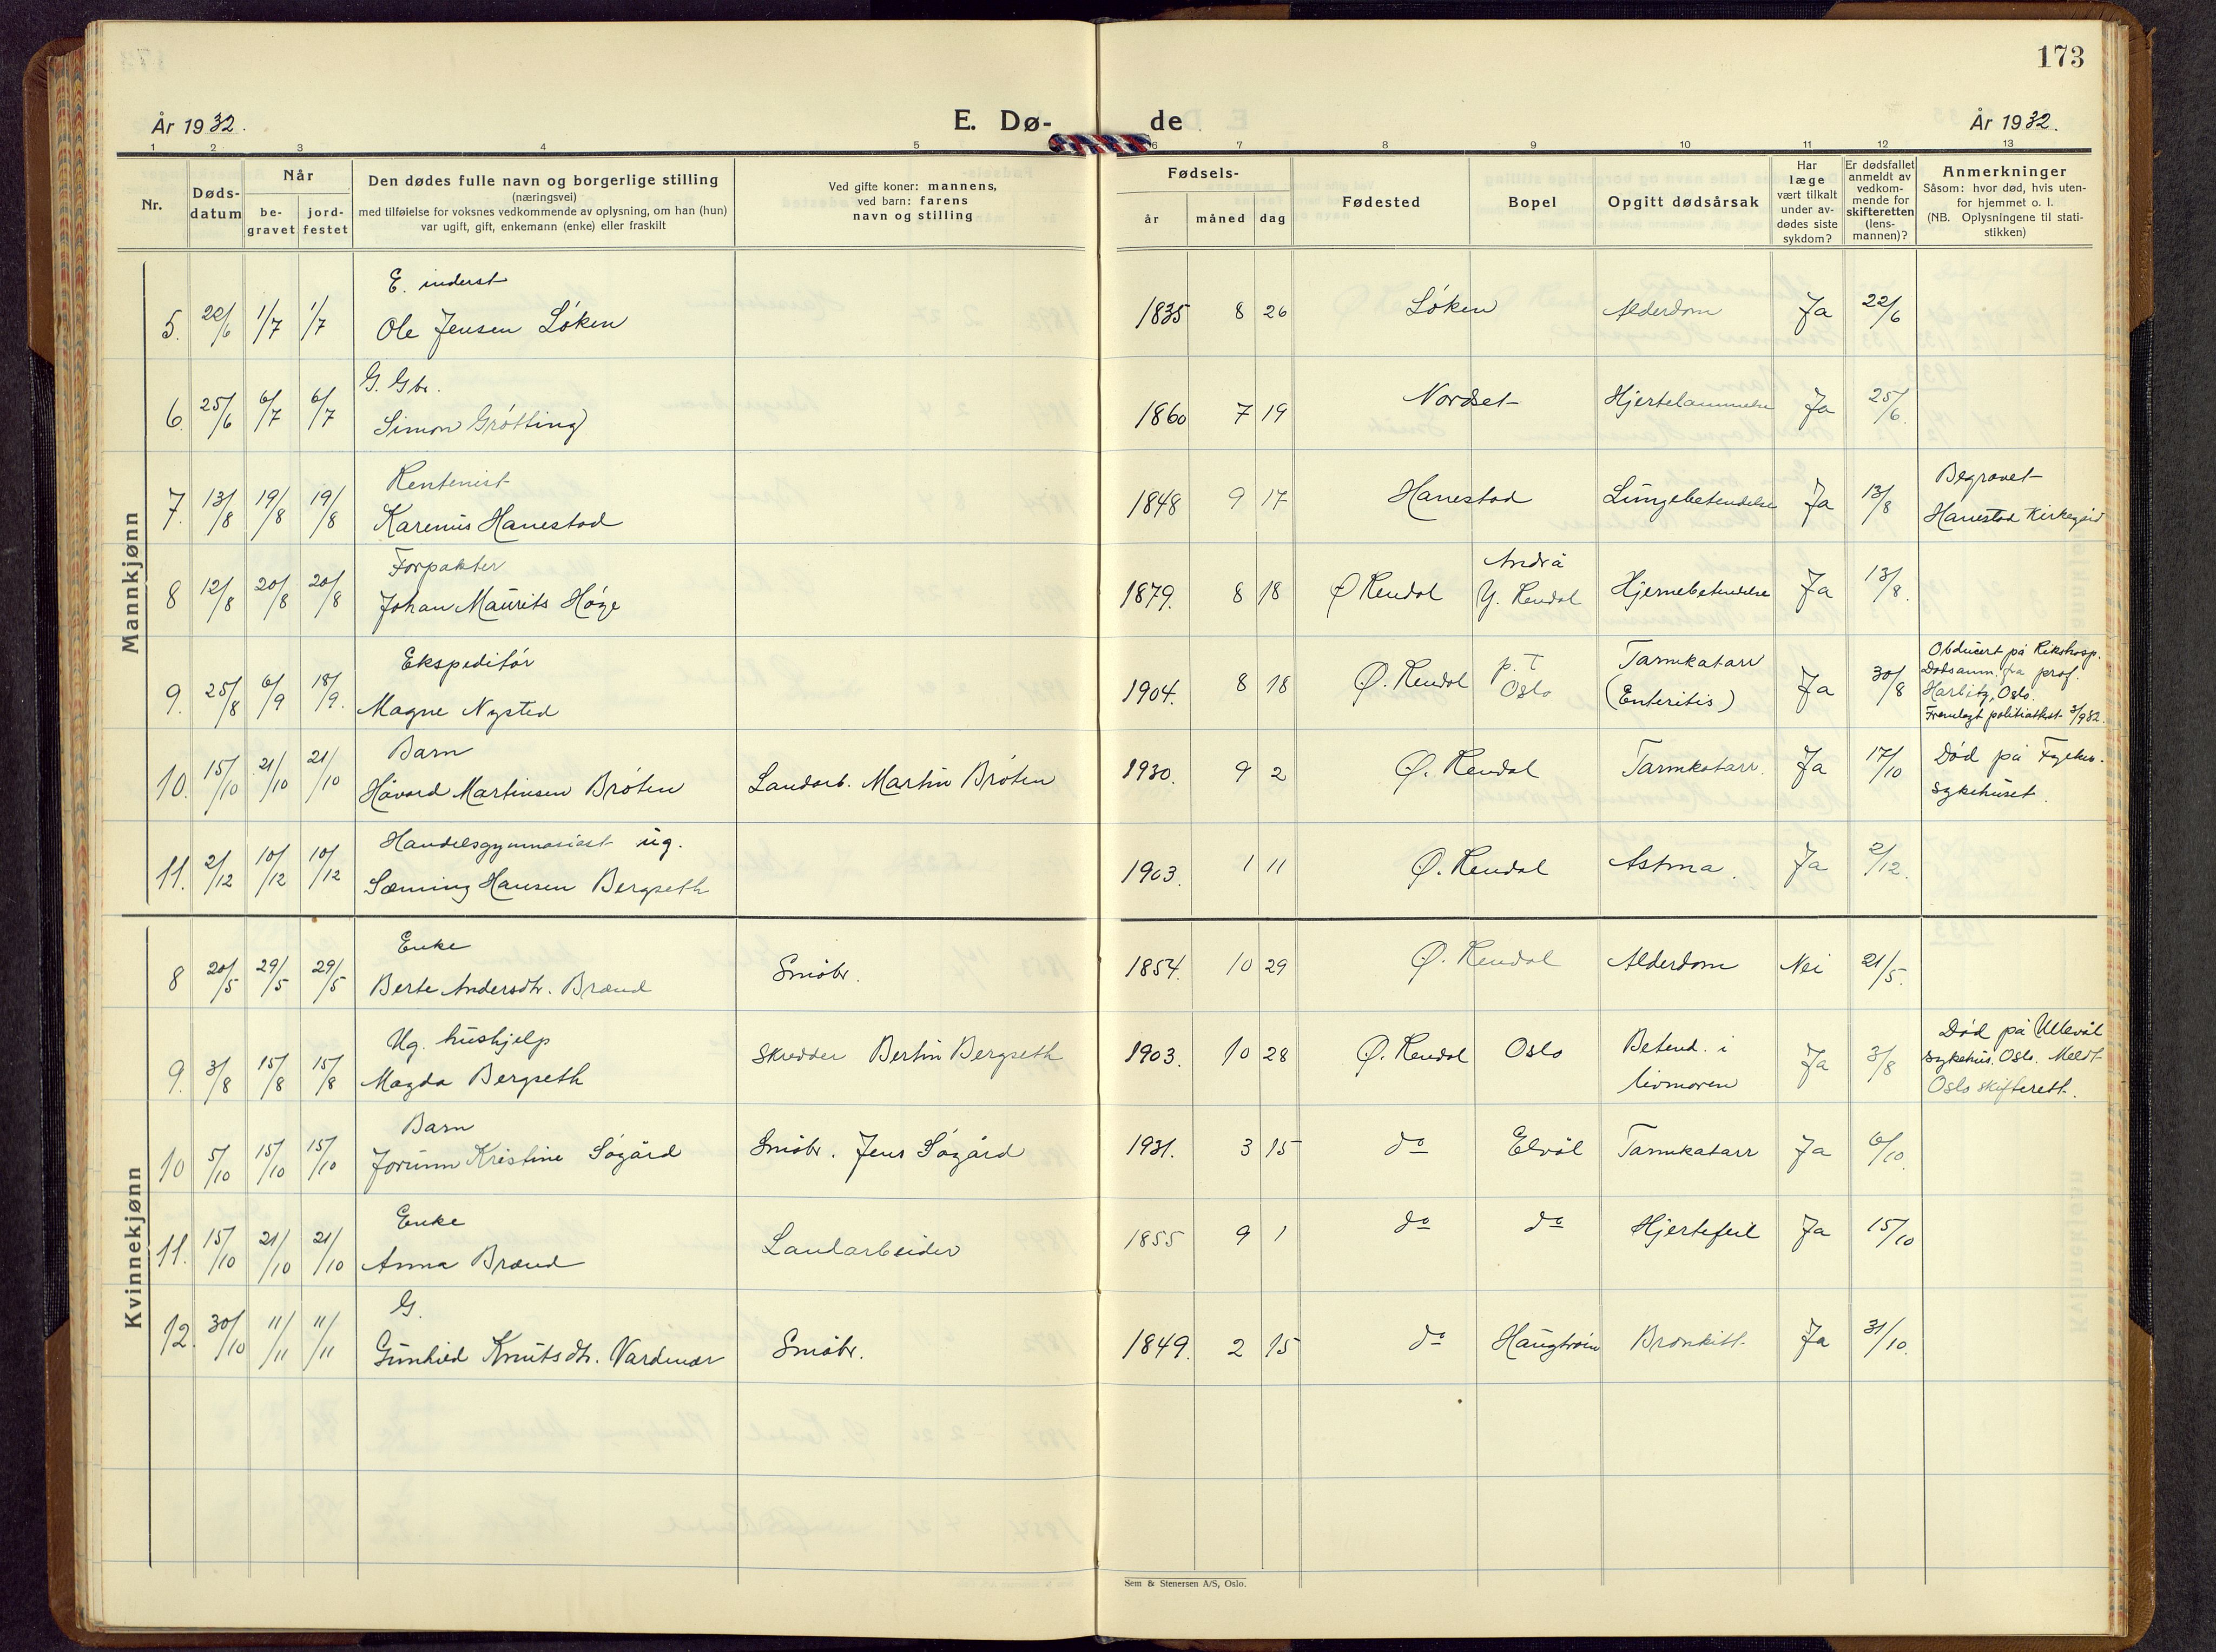 173
År 1932.
E. Dø-
de
År 1932.
1 2 3 4 5 6 7 8 9 10 11 12 13
Nr.
Døds-
datum
Når
be-
gravet
jord-
festet
Den dødes fulle navn og borgerlige stilling
(næringsvei)
med tilføielse for voksnes vedkommende av oplysning, om han (hun)
var ugift, gift, enkemann (enke) eller fraskilt
Ved gifte koner: mannens,
ved barn: farens
navn og stilling
Fødsels-
år
måned
dag
Fødested
Bopel
Opgitt dødsårsak
Har
læge
vært tilkalt
under av-
dødes siste
sykdom?
Er dødsfallet
anmeldt av
vedkom-
mende for
skifteretten
(lens-
mannen)?
Anmerkninger
Såsom: hvor død, hvis uten-
for hjemmet o. l.
(NB. Oplysningene til stati-
stikken)
Mannkjønn
E. inderst
5. 22/6 1/7 1/7 Ole Jensen Løken 1835 8 26 Løken Alderdom Ja 22/6
G. Gbr.
6. 25/6 6/7 6/7 Simon Grøtting 1860 7 19 Nordset Hjertelammelse Ja 25/6.
Rentenist
7. 13/8 19/8 19/8 Karenus Hanestad 1848 9 17 Hanestad Lungebetendelse Ja 13/8
Begravet
Hanestad Kirkegård
Forpakter
8 12/8 20/8 20/8 Johan Maurits Høye 1879. 8 18 Ø Rendal
Andrå
Y. Rendal
Hjernebetendelse Ja 13/8.
Ekspeditør
9. 25/8 6/9 18/9. Magne Nysted 1904. 8 18 Ø. Rendal
p. T
Oslo
Tarmkatarr
(Enteritis)
Ja 30/8
Obducert på Rikshosp.
Dødsanm. fra prof.
Harbitz, Oslo.
Fremlagt politiattest 3/9 32.
Barn
10. 15/10 21/10 21/10 Håvard Martinsen Brøten Landarb. Martin Brøten 1930. 9 2 Ø. Rendal Tarmkatarr. Ja 17/10
Død på
sykehuset.
Handelsgymnasiast ug.
11. 2/12 10/12 10/12 Sæming Hansen Bergseth 1903. 1 11 Ø. Rendal Astma. Ja 2/12.
Kvinnekjønn
Enke
8 20/5 29/5 29/5 Berte Andersdtr. Brænd Småbr. 1854. 10 29 Ø. Rendal Alderdom Nei 21/5.
Ug. hushjelp
9. 3/8 15/8 15/8 Magda Bergseth Skredder Bertin Bergseth 1903. 10 28 Ø. Rendal Oslo
Betend. i
livmoren
Ja 3/8
Død på Ullevål
sykehus. Oslo. Meldt
Oslo skifterett.
Barn
10 5/10 15/10 15/10 Jorunn Kristine Søgård Småbr. Jens Søgård 1931. 3 15 do Elvål Tarmkatarr Ja 6/10.
Enke
11. 15/10 21/10 21/10 Anna Brænd Landarbeider 1855 9 1 do do Hjertefeil Ja 15/10
G.
12. 30/10 11/11 11/11 Gunhild Knutsdtr. Vardenær Småbr. 1849. 2 15 do Haugtrøen Bronkitt Ja 31/10.
Sem & Stenersen A/S, Oslo.